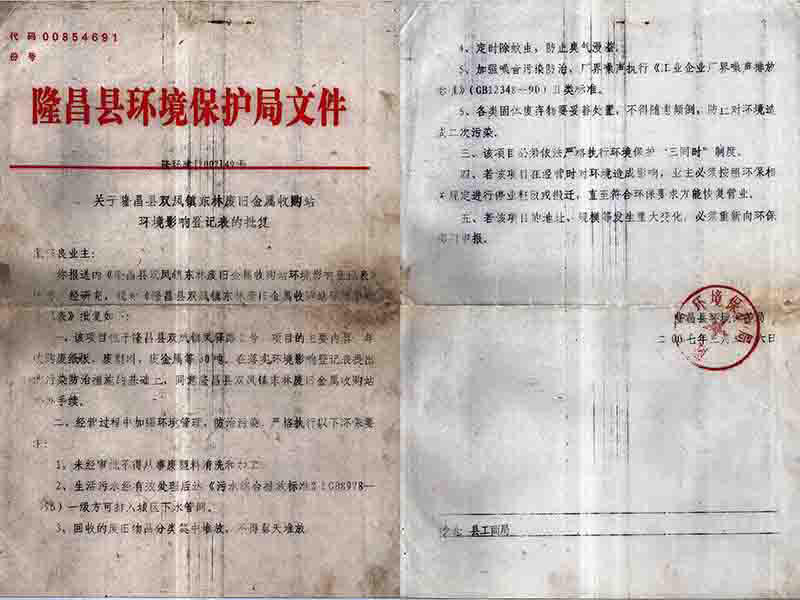 代码00854691
份号
隆昌县环境保护局文件
关于隆昌县双凤镇东林废旧金属收购站
环境影响登记表的批复
良业主:
你报送的《隆昌县双凤镇东林废旧金属收购站环境影响登记表》
经研究,现对《隆昌县双凤镇东林废旧金属收购站环境影响
表》批复如下:
一、该项目位于隆昌县双凤镇 号,项目的主要内容:年
收购废纸板、废塑料、废金属等 吨。在落实环境影响登记表提出
的污染防治措施的基础上,同意隆昌县双凤镇东林废旧金属收购站
办手续。
二、经营过程中加强环境管理,防治污染,严格执行以下环保要
求:
1、未经审批不得从事废塑料清洗和加工。
2、生活污水经有效处理后达《污水综合排放标准》(GB8978—
96)一级方可排入城区下水管网。
3、回收的废旧物品分类集中堆放,不得露天堆放。
4、定时除蚊虫,防止臭气漫溢。
5、加强噪音污染防治,厂界噪声执行《工业企业厂界噪声排放
标准》(GB12348—90)Ⅱ类标准。
6、各类固体废弃物要妥善处置,不得随意倾倒,防止对环境造
成二次污染。
三、该项目必须依法严格执行环境保护“三同时”制度。
四、若该项目在经营时对环境造成影响,业主必须按照环保相
关规定进行停业整改或搬迁,直至符合环保要求方能恢复营业。
五、若该项目的地址、规模等发生重大变化,必须重新向环保
部门申报。
隆昌县环境保护局
二〇〇七年 六日
县工商局